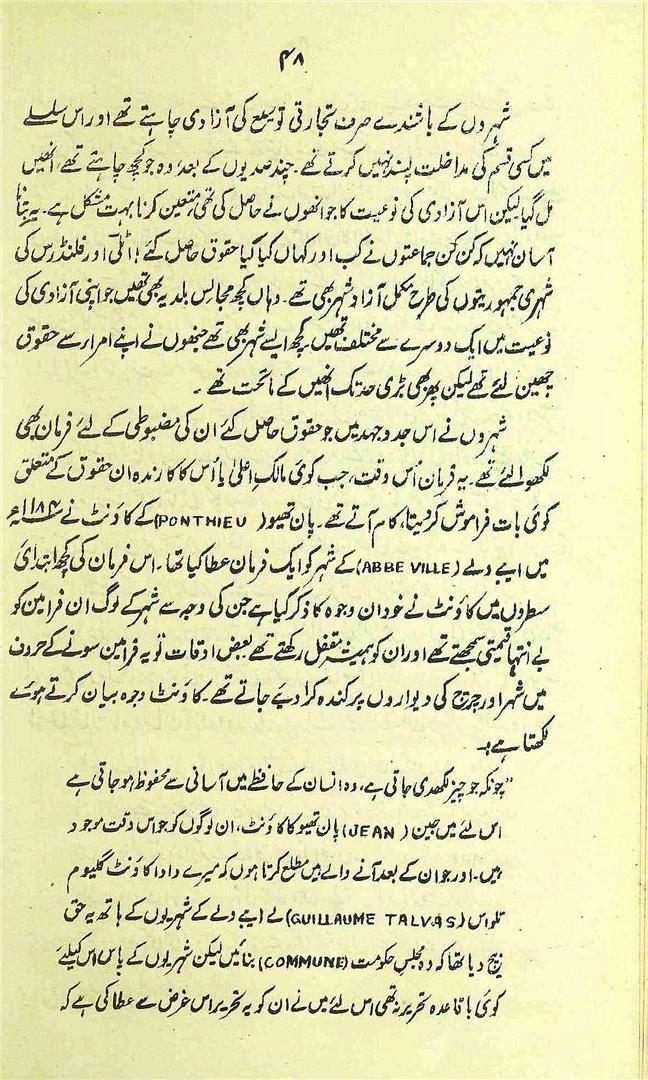 ۴۸
شہروں کے باشندے صرف تجارتی توسیع کی آزادی چاہتے تھے اور اس سلسلے
میں کسی قسم کی مداخلت پسند نہیں کرتے تھے۔ چند صدیوں کے بعد، وہ جو کچھ چاہتے تھے، انھیں
مل گیا لیکن اس آزادی کی نوعیت کا جو انھوں نے حاصل کی تھی، متعین کرنا بہت مشکل ہے۔ یہ بتانا
آسان نہیں کہ کن کن جماعتوں نے کب اور کہاں کیا کیا حقوق حاصل کئے! اٹلی اور فلنڈرس کی
شہری جمہوریتوں کی طرح مکمل آزاد شہر بھی تھے۔ وہاں کچھ مجالس بلدیہ بھی تھیں جو اپنی آزادی کی
نوعیت میں ایک دوسرے سے مختلف تھیں۔ کچھ ایسے شہر بھی تھے جنھوں نے اپنے امراء سے حقوق
چھین لئے تھے لیکن پھر بھی بڑی حد تک انھیں کے ماتحت تھے۔
شہروں نے اس جدوجہد میں جو حقوق حاصل کئے ان کی مضبوطی کے لئے فرمان بھی
لکھوا لئے تھے۔ یہ فرمان اُس وقت، جب کوئی مالکِ اعلیٰ یا اُس کا کارندہ ان حقوق کے متعلق
کوئی بات فراموش کر دیتا، کام آتے تھے۔ پان تھیو (PONTHIEU) کے کاؤنٹ نے ۱۱۸۴ء
میں ایبے ویلے (ABBE VILLE) کے شہر کو ایک فرمان عطا کیا تھا۔ اس فرمان کی کچھ ابتدائی
سطروں میں کاؤنٹ نے خود ان وجوہ کا ذکر کیا ہے جن کی وجہ سے شہر کے لوگ ان فرامین کو
بے انتہا قیمتی سمجھتے تھے اور ان کو ہمیشہ مقفل رکھتے تھے بعض اوقات تو یہ فرامین سونے کے حروف
میں شہر اور چرچ کی دیواروں پر کندہ کرا دیے جاتے تھے۔ کاؤنٹ وجوہ بیان کرتے ہوئے
لکھتا ہے:۔
"چونکہ جو چیز لکھدی جاتی ہے، وہ انسان کے حافظے میں آسانی سے محفوظ ہو جاتی ہے
اس لئے میں جین (JEAN) پان تھیو کا کاؤنٹ، ان لوگوں کو جو اس وقت موجود
ہیں۔ اور جو ان کے بعد آنے والے ہیں مطلع کرتا ہوں کہ میرے دادا کاؤنٹ گلیوم
تلواس (GUILLAUME TALVAS) نے ایبے ویلے کے شہریوں کے ہاتھ یہ حق
بیچ دیا تھا کہ وہ مجلسِ حکومت (COMMUNE) بنائیں لیکن شہریوں کے پاس اس کیلئے
کوئی باقاعدہ تحریر نہ تھی اس لئے میں نے ان کو یہ تحریر اس غرض سے عطا کی ہے کہ